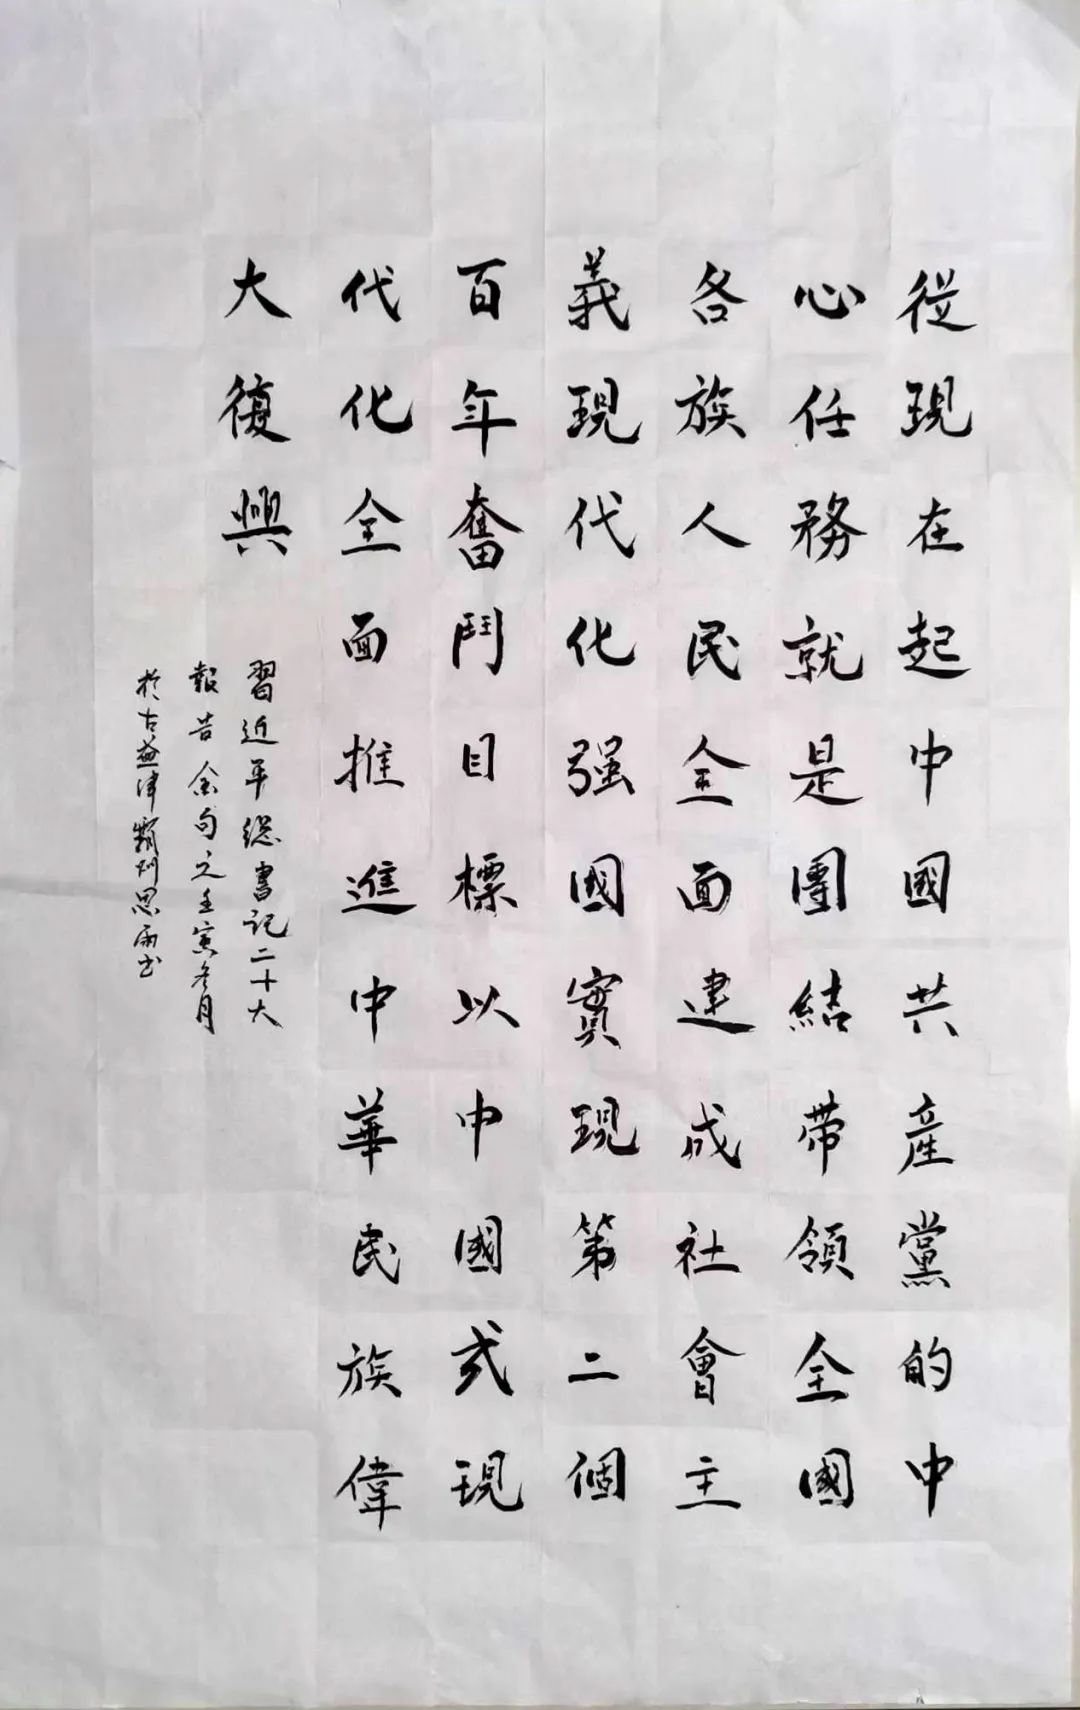 從現在起中國共產黨的中
心任務就是團結帶領全國
各族人民全面建成社會主
義現代化强國實現第二個
百年奮鬥目標以中國式現
代化全面推進中華民族偉
大復興
習近平總書記二十大
報告金句之壬寅冬月
於古益津劉思雨書